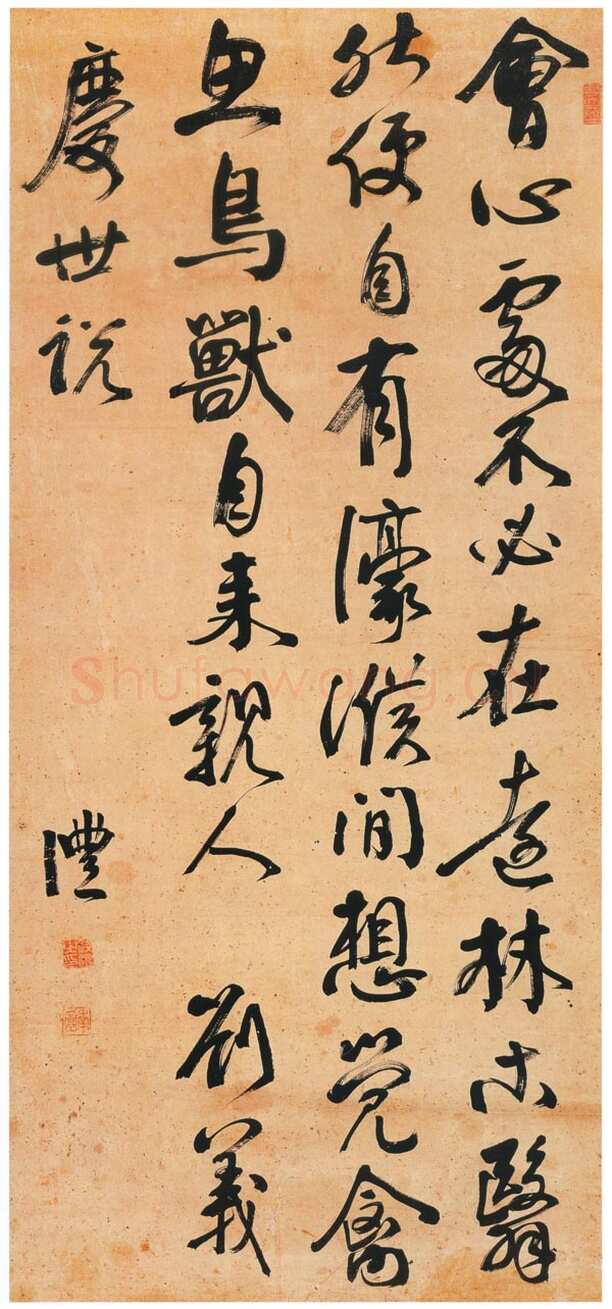 會心處不必在遠林木翳
然便自有濠濮間想覺禽
魚鳥獸自来親人 劉義
慶世説
澧
Shufawang.cn